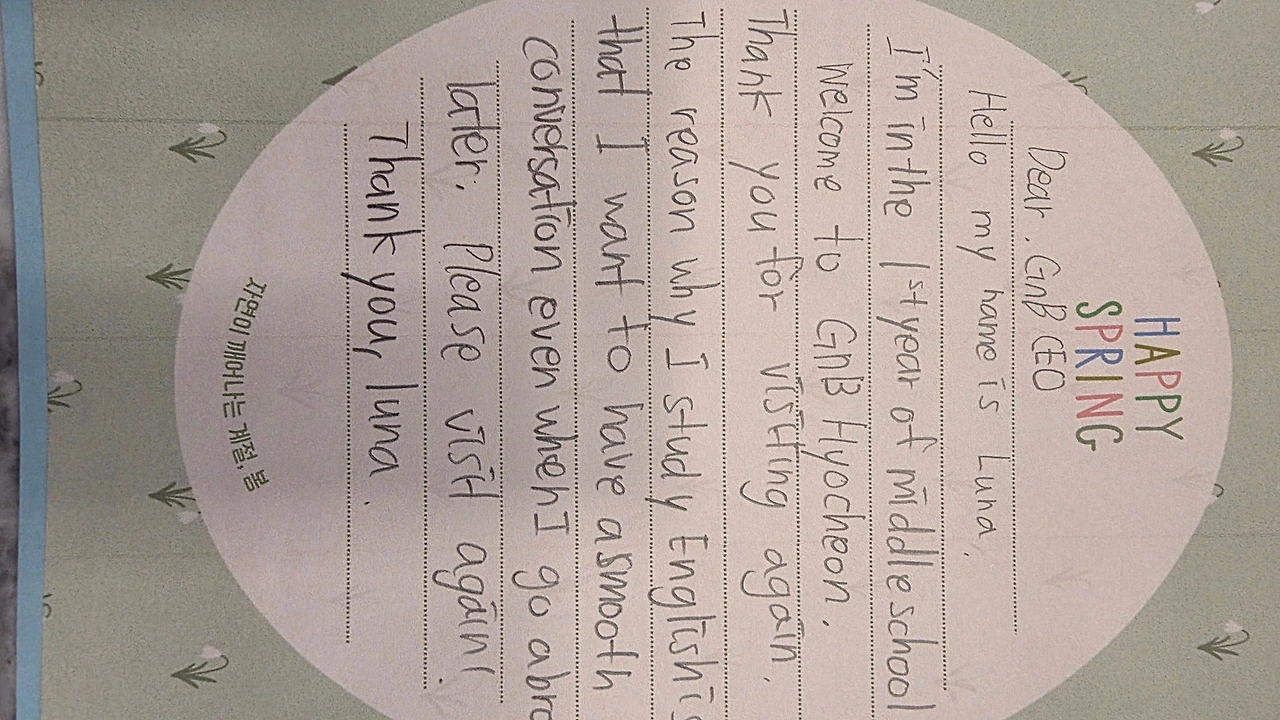 HAPPY
SPRING
Dear. GnB CEO
Hello my name is Luna,
I'm in the 1st year of middle school
Welcome to GnB Hyocheon.
Thank you for visiting again.
The reason why I study English is
that I want to have a smooth
conversation even when I go abro
later. Please visit again!
Thank you, luna.
자연이 깨어나는 계절, 봄